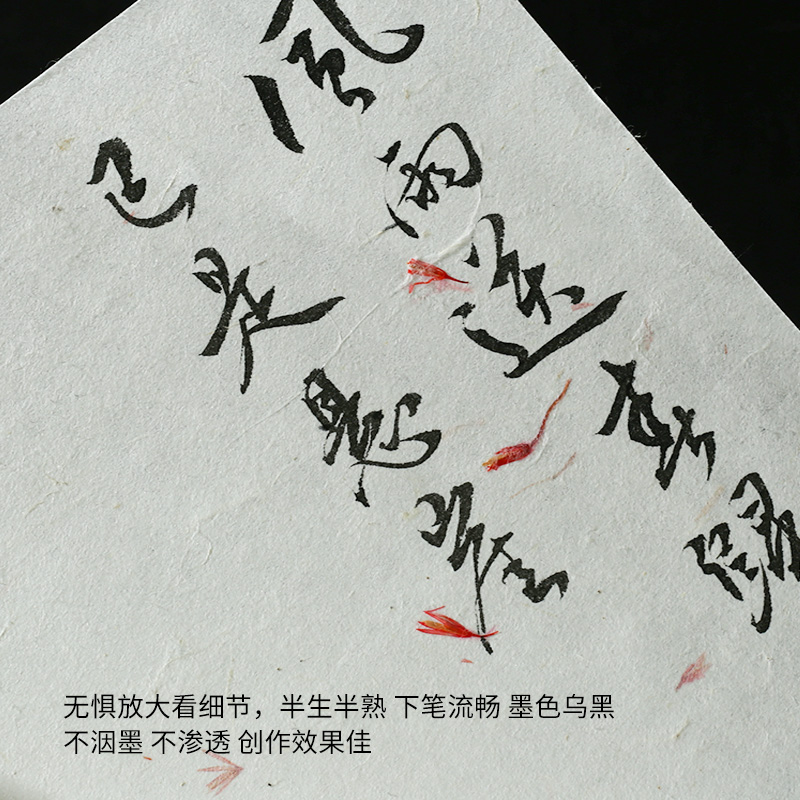 風雨送春歸
已是悬崖
无惧放大看细节，半生半熟 下笔流畅 墨色乌黑
不洇墨 不渗透 创作效果佳